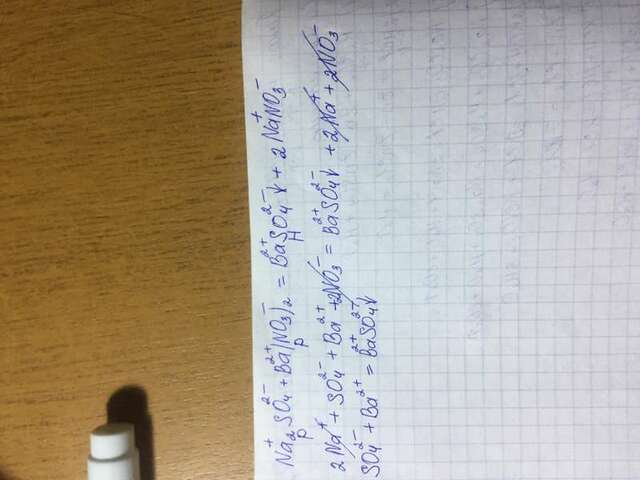 Na₂⁺SO₄²⁻ + Ba²⁺(NO₃)₂⁻ = Ba²⁺SO₄²⁻↓ + 2Na⁺NO₃⁻
р р Н
2Na⁺ + SO₄²⁻ + Ba²⁺ + 2NO₃⁻ = Ba²⁺SO₄²⁻↓ + 2Na⁺ + 2NO₃⁻
SO₄²⁻ + Ba²⁺ = Ba²⁺SO₄²⁻↓